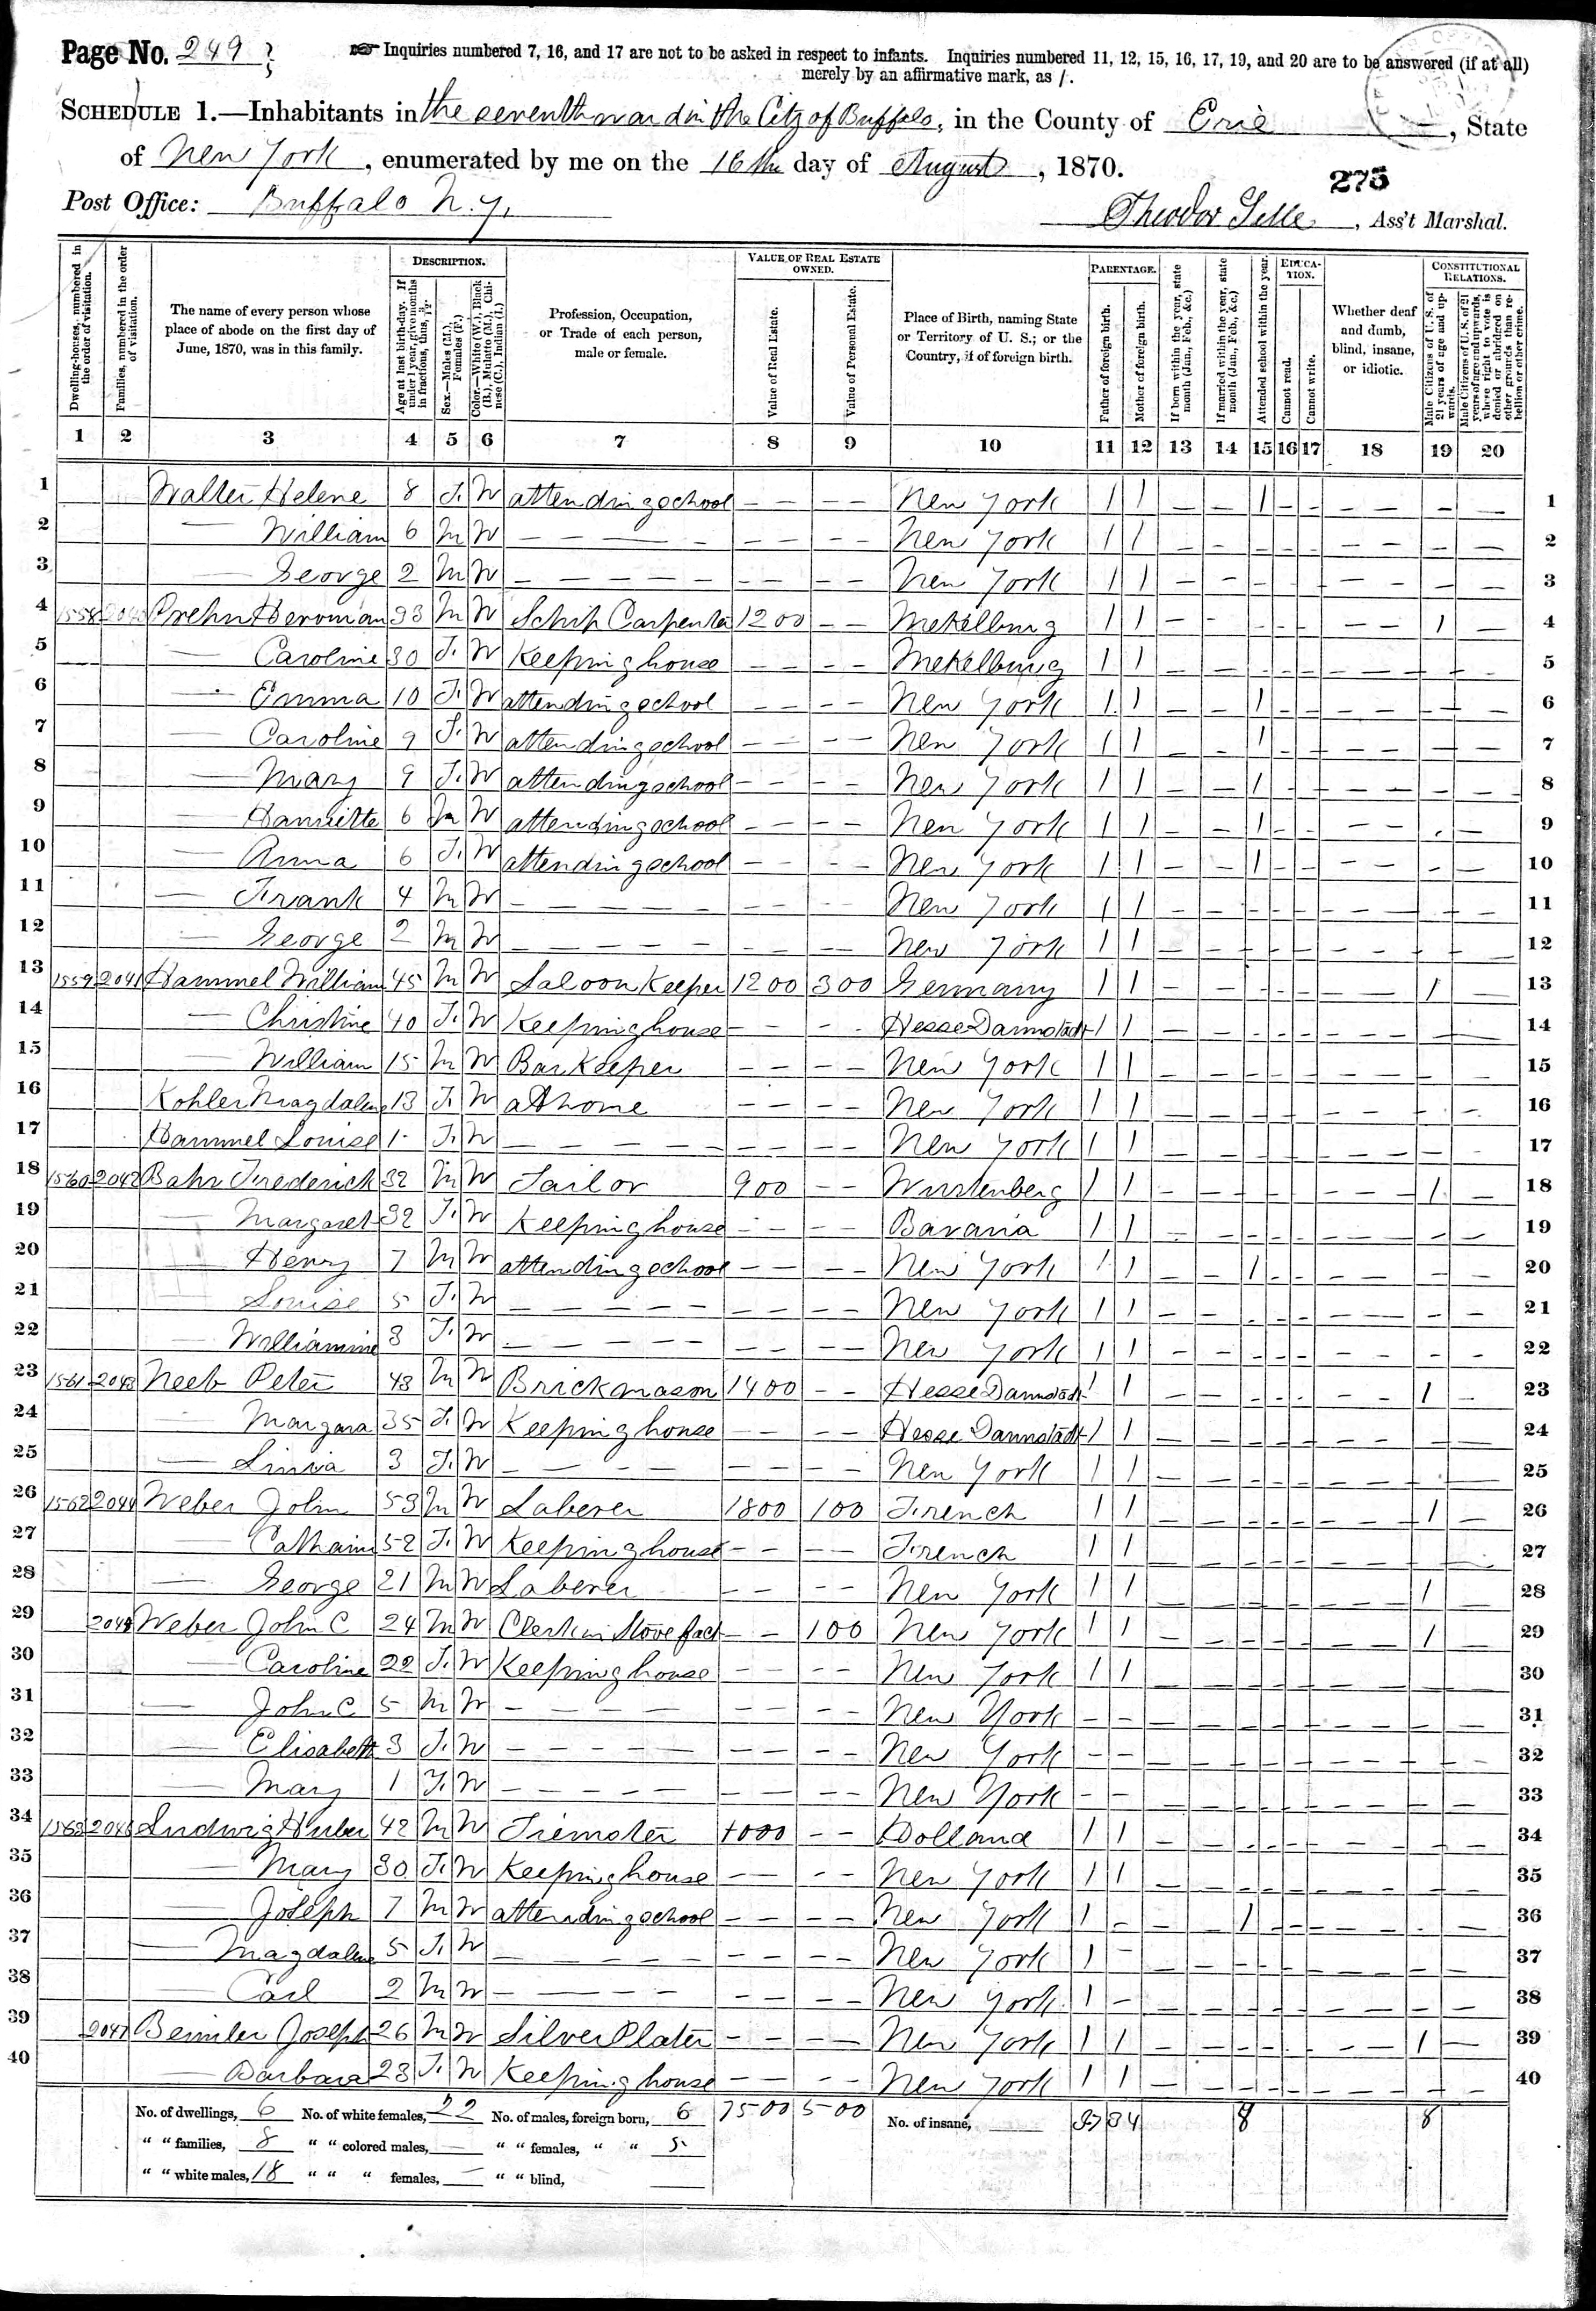 Page No. 249
☞ Inquiries numbered 7, 16, and 17 are not to be asked in respect to infants. Inquiries numbered 11, 12, 15, 16, 17, 19, and 20 are to be answered (if at all)
merely by an affirmative mark, as /.
SCHEDULE 1.—Inhabitants in the seventh ward in the City of Buffalo, in the County of Erie, State
of New York, enumerated by me on the 16th day of August, 1870.
275
Post Office: Buffalo N.Y.
Theodor, Ass't Marshal.
Dwelling-houses, numbered in the order of visitation.
Families, numbered in the order of visitation.
The name of every person whose place of abode on the first day of June, 1870, was in this family.
DESCRIPTION.
Age at last birth-day. If under 1 year, give months in fractions, thus, 3/12.
Sex.—Males (M.), Females (F.)
Color.—White (W.), Black (B.), Mulatto (M.), Chinese (C.), Indian (I.)
Profession, Occupation, or Trade of each person, male or female.
VALUE OF REAL ESTATE OWNED.
Value of Real Estate.
Value of Personal Estate.
Place of Birth, naming State or Territory of U. S.; or the Country, if of foreign birth.
PARENTAGE.
Father of foreign birth.
Mother of foreign birth.
If born within the year, state month (Jan., Feb., &c.)
If married within the year, state month (Jan., Feb., &c.)
Attended school within the year.
EDUCATION.
Cannot read.
Cannot write.
Whether deaf and dumb, blind, insane, or idiotic.
CONSTITUTIONAL RELATIONS.
Male Citizens of U. S. of 21 years of age and upwards.
Male Citizens of U. S. of 21 years of age and upwards, where right to vote is denied or abridged on other grounds than rebellion or other crime.
1 2 3 4 5 6 7 8 9 10 11 12 13 14 15 16 17 18 19 20
1 Walter Helene 8 F. W attending school — — New York 1 1 — — 1 — — — — — 1
2 — William 6 M W — — — New York 1 1 — — — — — — — — 2
3 — George 2 M W — — — New York 1 1 — — — — — — — — 3
4 1558 2040 Prehn Herman 33 M W Schip Carpenter 1200 — Mekelburg 1 1 — — — — — — 1 — 4
5 — Caroline 30 F. W Keeping house — — Mekelburg 1 1 — — — — — — — — 5
6 — Emma 10 F. W attending school — — New York 1 1 — — 1 — — — — — 6
7 — Caroline 9 F. W attending school — — New York 1 1 — — 1 — — — — — 7
8 — Mary 9 F. W attending school — — New York 1 1 — — 1 — — — — — 8
9 — Hanriette 6 M W attending school — — New York 1 1 — — 1 — — — — — 9
10 — Anna 6 F. W attending school — — New York 1 1 — — 1 — — — — — 10
11 — Frank 4 M W — — — New York 1 1 — — — — — — — — 11
12 — George 2 M W — — — New York 1 1 — — — — — — — — 12
13 1559 2041 Hammel William 45 M W Saloon Keeper 1200 300 Germany 1 1 — — — — — — 1 — 13
14 — Christine 40 F. W Keeping house — — Hesse Darmstadt 1 1 — — — — — — — — 14
15 — William 15 M W Bar Keeper — — New York 1 1 — — — — — — — — 15
16 Kohler Magdalene 13 F. W at home — — New York 1 1 — — — — — — — — 16
17 Hammel Louise 1 F. W — — — New York 1 1 — — — — — — — — 17
18 1560 2042 Bahr Frederick 32 M W Tailor 900 — Wurtenberg 1 1 — — — — — — 1 — 18
19 — Margaret 32 F. W Keeping house — — Bavaria 1 1 — — — — — — — — 19
20 — Henry 7 M W attending school — — New York 1 1 — — 1 — — — — — 20
21 — Louise 5 F. W — — — New York 1 1 — — — — — — — — 21
22 — Williamine 3 F. W — — — New York 1 1 — — — — — — — — 22
23 1561 2043 Neeb Peter 43 M W Brick mason 1400 — Hesse Darmstadt 1 1 — — — — — — 1 — 23
24 — Margara 35 F. W Keeping house — — Hesse Darmstadt 1 1 — — — — — — — — 24
25 — 3 F. W — — — New York 1 1 — — — — — — — — 25
26 1562 2044 Weber John 53 M W Laberer 1800 100 French 1 1 — — — — — — 1 — 26
27 — Catharine 52 F. W Keeping house — — French 1 1 — — — — — — — — 27
28 — George 21 M W Laberer — — New York 1 1 — — — — — — 1 — 28
29 2045 Weber John C 24 M W Clerk in Stove fact — 100 New York 1 1 — — — — — — 1 — 29
30 — Caroline 22 F. W Keeping house — — New York 1 1 — — — — — — — — 30
31 — John C 5 M W — — — New York — — — — — — — — — — 31
32 — Elisabeth 3 F. W — — — New York — — — — — — — — — — 32
33 — Mary 1 F. W — — — New York — — — — — — — — — — 33
34 1563 2046 Ludwig Huber 42 M W Tiemster 1000 — Holland 1 1 — — — — — — — — 34
35 — Mary 30 F. W Keeping house — — New York 1 1 — — — — — — — — 35
36 — Joseph 7 M W attending school — — New York 1 — — — 1 — — — — — 36
37 — Magdalene 5 F. W — — — New York 1 — — — — — — — — — 37
38 — Carl 2 M W — — — New York 1 — — — — — — — — — 38
39 2047 Joseph 26 M W Silver Plater — — New York 1 1 — — — — — — 1 — 39
40 — Barbara 23 F. W Keeping house — — New York 1 1 — — — — — — — — 40
No. of dwellings, 6 No. of white females, 22 No. of males, foreign born, 6 7500 500 No. of insane, 37 34 8 8
" " families, 8 " " colored males, — " " females, " " 5
" " white males, 18 " " " females, — " " blind,